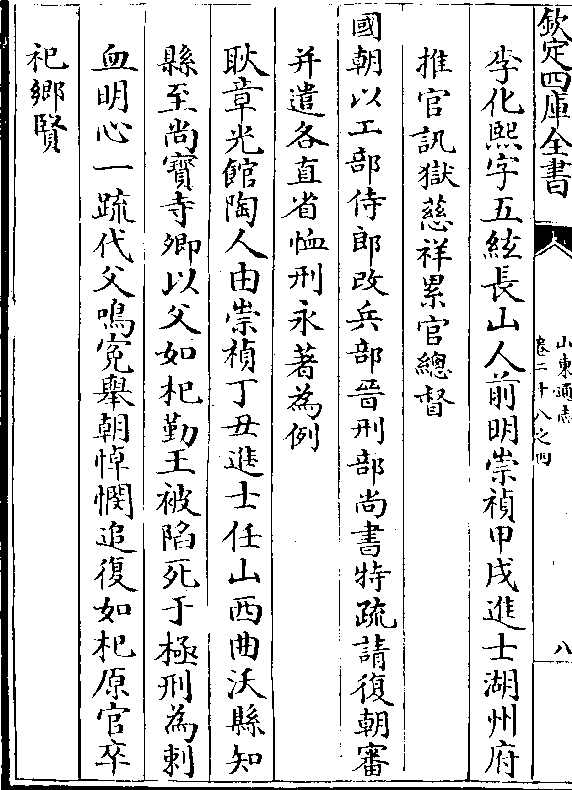 欽定四庫全書
山東通志
卷二十八之四
八
李化熙字五絃長山人前明崇禎甲戌進士湖州府
推官訊獄慈祥累官總督
國朝以工部侍郎改兵部晉刑部尚書特疏請復朝審
并遣各直省恤刑永著為例
耿章光館陶人由崇禎丁丑進士任山西曲沃縣知
縣至尚寶寺卿以父如杞勤王被陷死于極刑為刺
血明心一疏代父鳴寃舉朝悼憫追復如杞原官卒
祀鄉賢